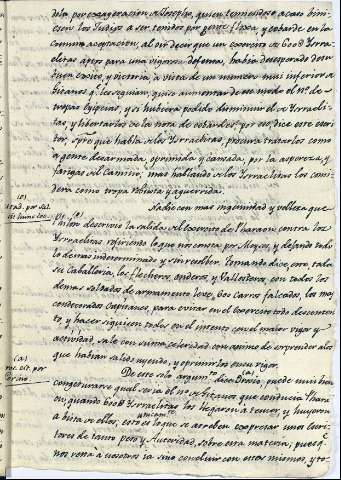 dola por exageracion a Josepho, quien temiendose acaso hini-
esen los Judios a ser tenidos por gente floxa, y cobarde en la
comun aceptacion, al oir decir que un exercito de 600 D Ysrra-
elitas aptos para una vigorosa defensa, havia desesperado de un
buen exito, y victoria a vista de un numero mui inferior a
Gitanos q.e les seguian, quiso aumentar de ese modo el n.o de
tropas Egipcias, y si hubiera podido disminuir el de Ysrraeli-
tas, y libertarlos de la nota de cobardes; por eso, dice este escri-
tor, spre que habla de los Ysrraelitas, procura tratarlos como
à gente desarmada, oprimida y cansada, por la aspereza, y
fatigas del Camino; mas hablando de los Ysrraelitas los consi-
dera como tropa robusta y aguerrida.
Nadie con mas ingenuidad y viveza que
Philon describio la salida del exercito de Pharaon contra los
Ysrraelitas refiriendo lo que nos consta por Moyses, y dejando todo
lo demas indeterminado y sin resolver. Comandò dice, con toda
su Caballeria, los flecheros, onderos, y Vallesteros, con todos los
demas soldados de armamento leve, 600 Carros falcados, los mas
condecorados Capitanes, para evitar en el exercito todo descontento
y hacer siguiesen todos en el intento con el maior vigor y
actividad, sale con suma celeridad con animo de sorprender a los
que habian salido huiendo, y oprimirlos en su vigor.
De este solo argum.to dice Bravio, puede mui bien
congeturarse qual seria el n.o de Gitanos que conducia Phara
on, quando 600 D Ysrraelitas los llegaron a temer, y huyeron
a vista de ellos; esto es lo que se atreben a expresar unos Escri-
tores de tanto peso y Autoridad, sobre esta materia; pues q.e
nos resta a nosotros sino concluir con estos mismos, y to-